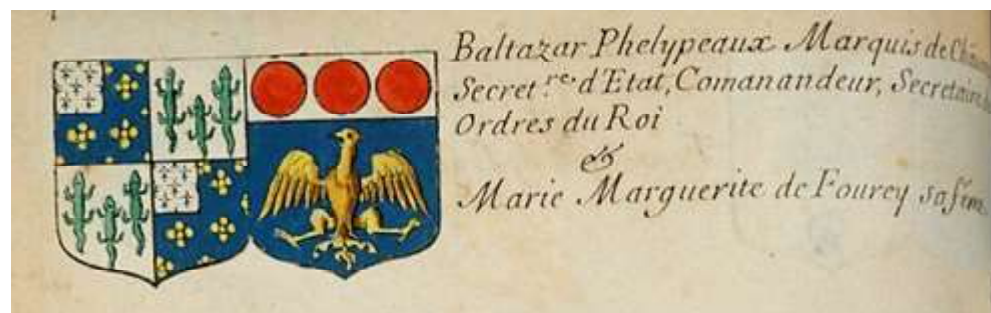 Baltazar Phelypeaux Marquis de
Secret.res d'Etat, Comanandeur, Secretaire
Ordres du Roi
&
Marie Marguerite de Fourcy sa fem